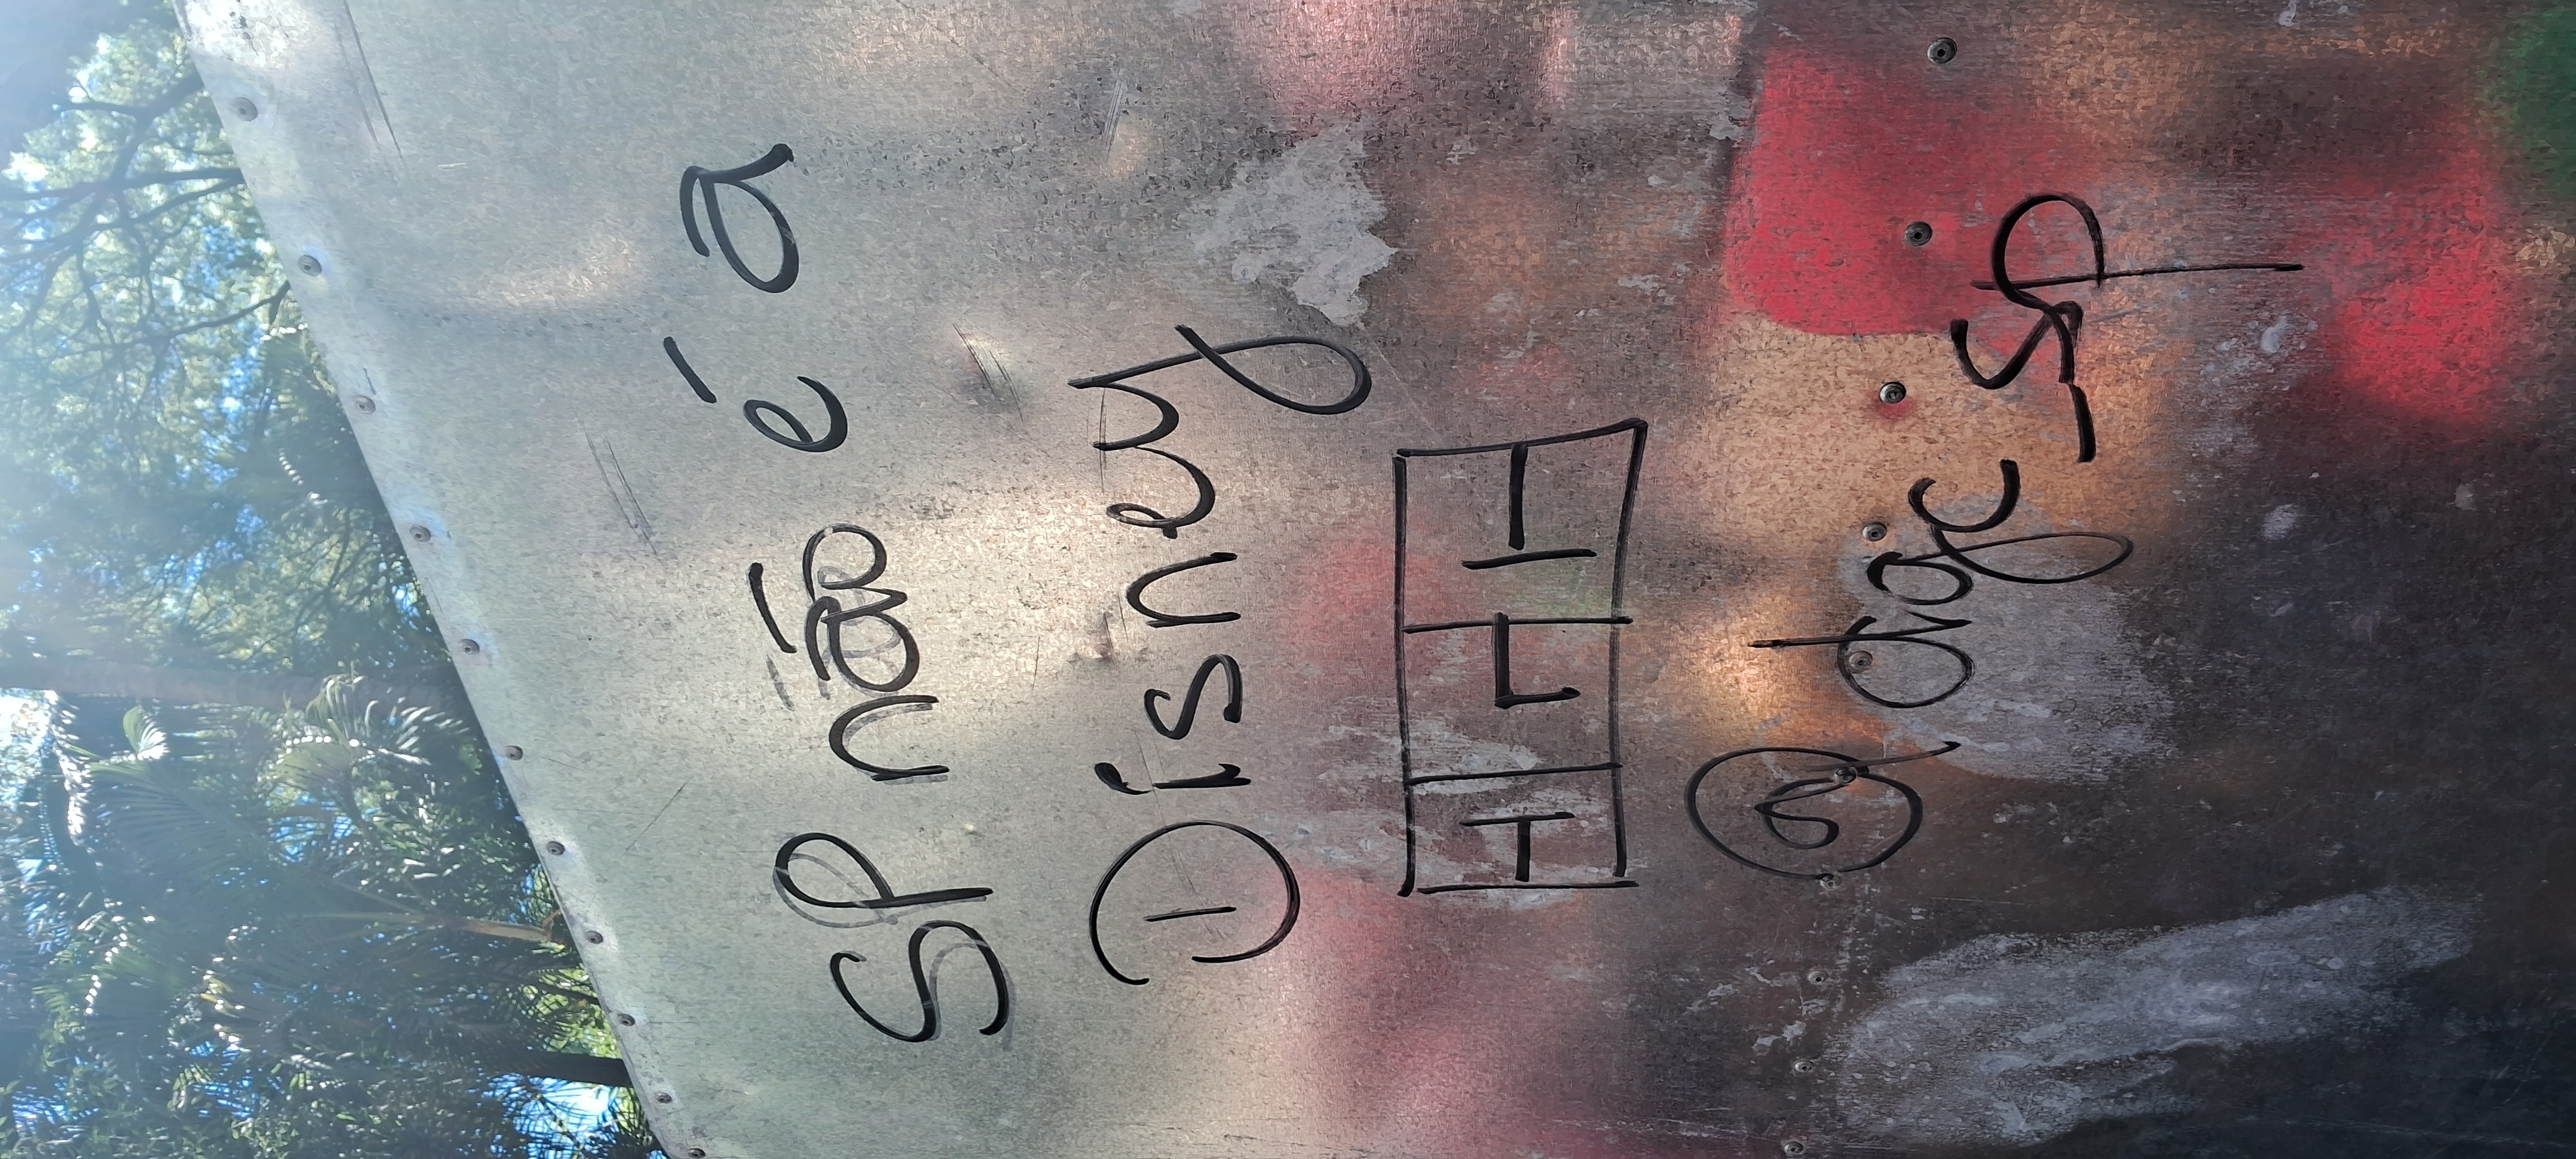 SP não é a
Disney
@dgc_sp